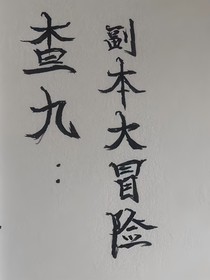 查九：
副本大冒险